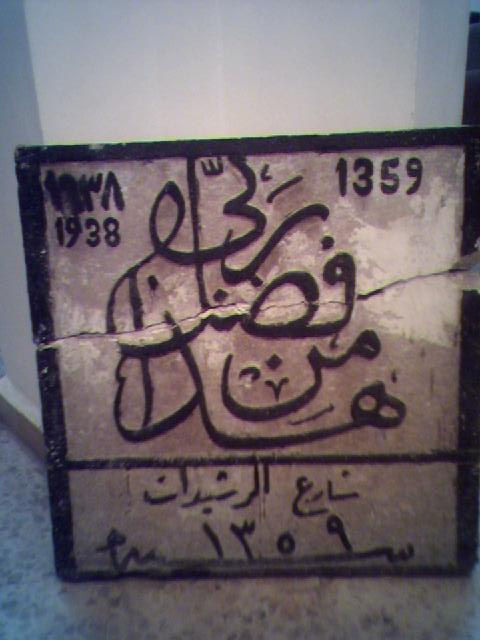 ١٩٣٨
1938
1359
هذا من فضل ربي
شارع الرشيدات
١٣٥٩